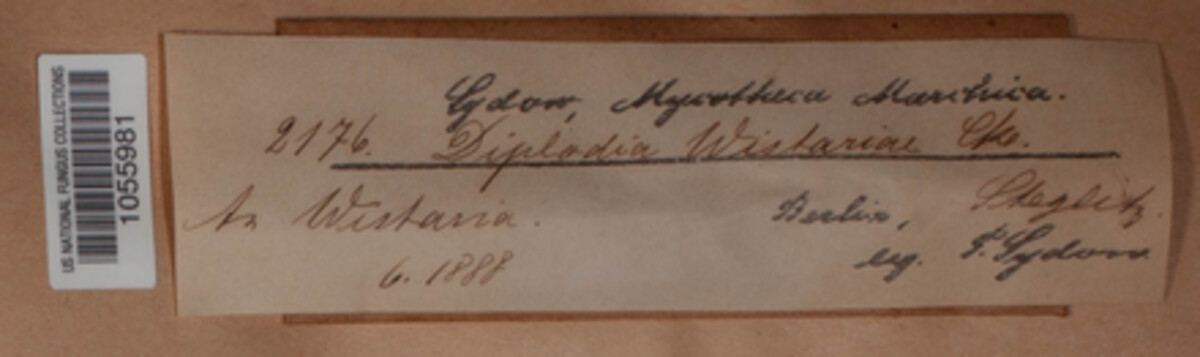 US NATIONAL FUNGUS COLLECTIONS
1055981
Sydow, Mycotheca Marchica.
2176. Diplodia Wistariae Cke.
An Wistaria. Berlin, Steglitz.
6. 1888 leg. P. Sydow